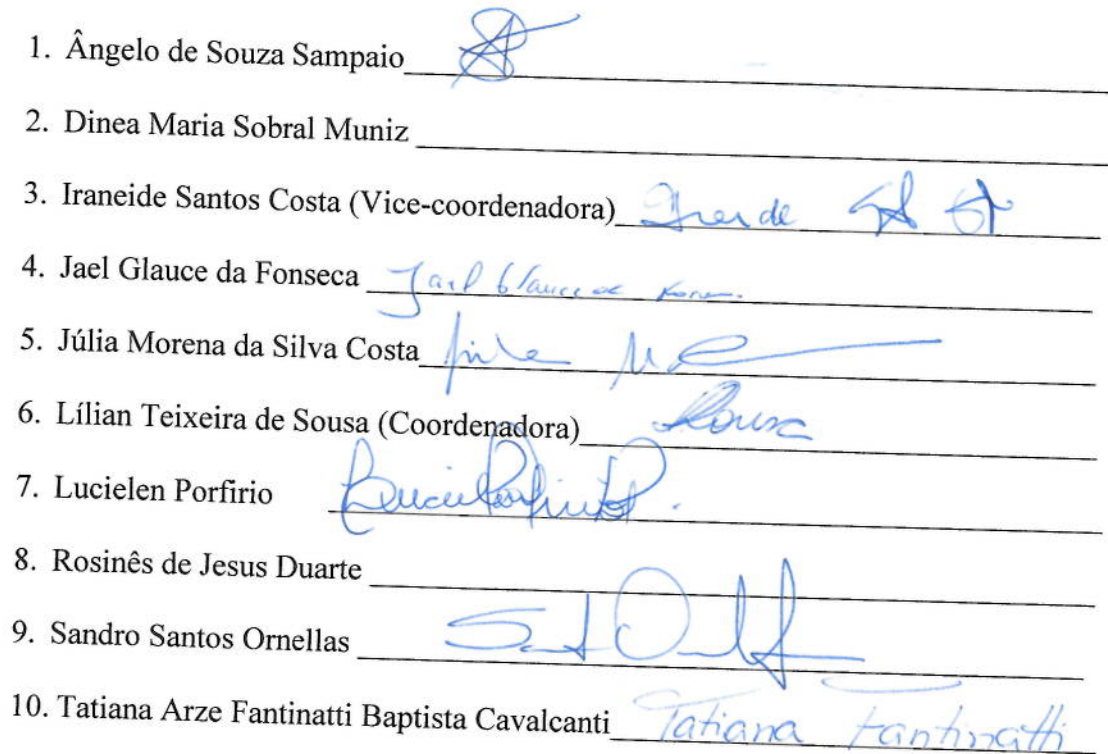 1. Ângelo de Souza Sampaio
2. Dinea Maria Sobral Muniz
3. Iraneide Santos Costa (Vice-coordenadora)
4. Jael Glauce da Fonseca Jael Glauce da
5. Júlia Morena da Silva Costa
6. Lílian Teixeira de Sousa (Coordenadora) Sousa
7. Lucielen Porfirio
8. Rosinês de Jesus Duarte
9. Sandro Santos Ornellas
10. Tatiana Arze Fantinatti Baptista Cavalcanti Tatiana Fantinatti